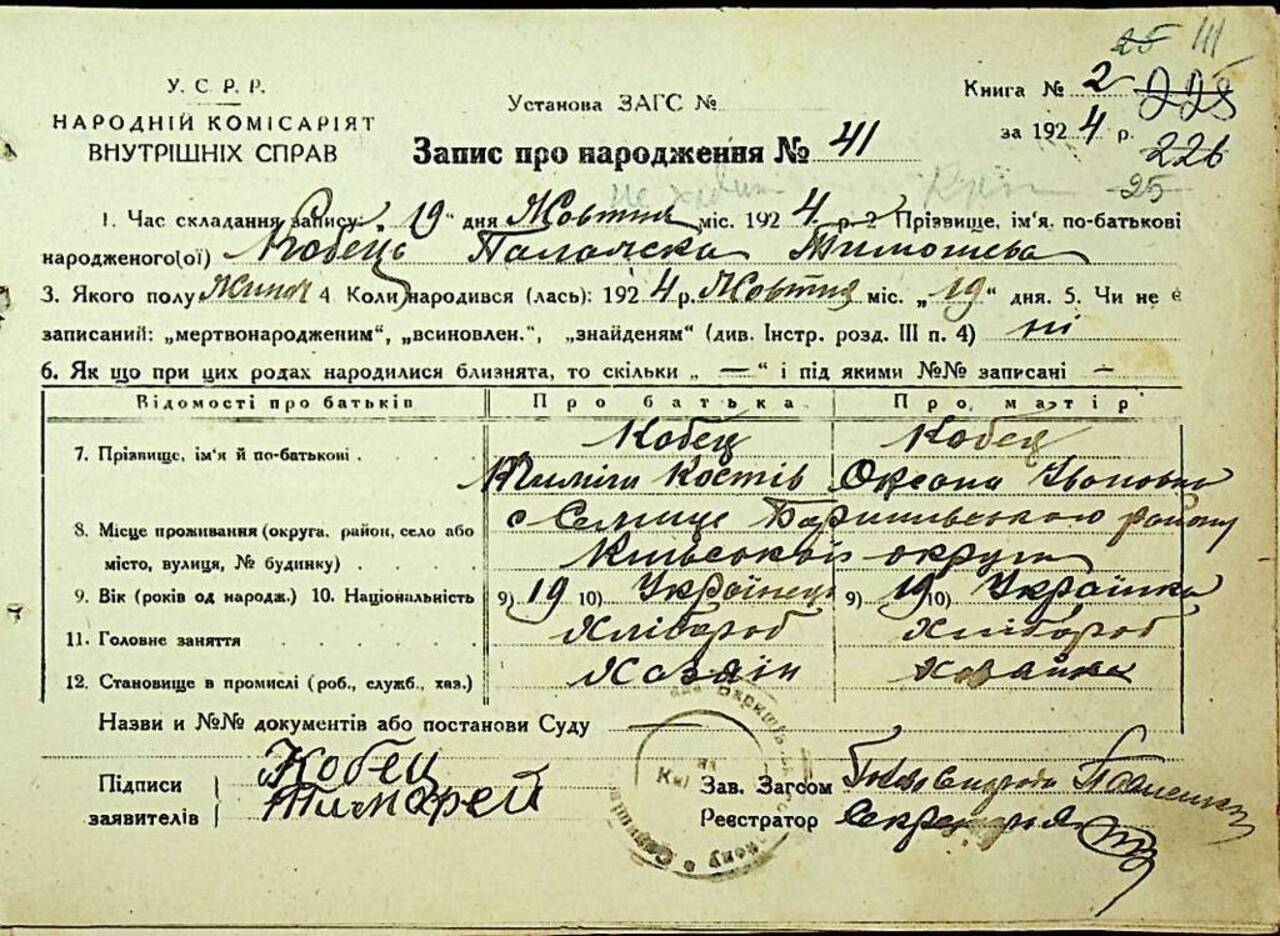 25 III
У. С. Р. Р.
НАРОДНІЙ КОМІСАРІЯТ
ВНУТРІШНІХ СПРАВ
Установа ЗАГС №
Запис про народження № 41
Книга № 2 228
за 1924 р. 226
25
1. Час складання запису: „19“ дня Жовтня міс. 1924 р. 2 Прізвище, ім'я, по-батькові
народженого(ої) Кобець Тимошева
3. Якого полу 4. Коли народився (лась): 1924 р. Жовтня міс. „19“ дня. 5. Чи не є
записаний: „мертвонародженим“, „всиновлен.“, „знайденям“ (див. Інстр. розд. III п. 4) ні
6. Як що при цих родах народилися близнята, то скільки „ — “ і під якими №№ записані —
Відомості про батьків Про батька Про матір
7. Прізвище, ім'я й по-батькові . . . . Кобец Кобец
Костів Оксана Івановна
8. Місце проживання (округа, район, село або
місто, вулиця, № будинку) . . . . с Селище Баришівського району
Київської округи
9. Вік (років од народж.) 10. Національність 9) 19 10) Українець 9) 19 10) Українка
11. Головне заняття . . . . . Хлібороб Хлібороб
12. Становище в промислі (роб., служб., хаз.) Хазяін хазяйка
Назви и №№ документів або постанови Суду —
Підписи
заявителів
Кобец
Тимофей
Зав. Загсом
Реєстратор Секретарь